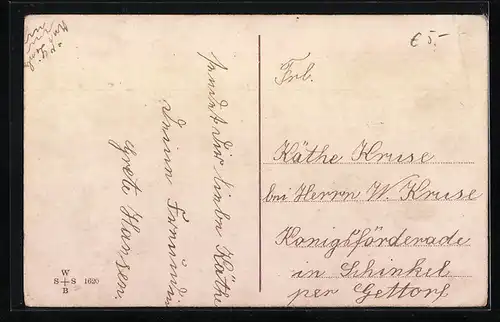 € 5.-
Frl.
Käthe Kruse
bei Herrn W. Kruse
Königsförderade
in Schinkel
per Gettorf
sendet dir liebe Käthe
Deine Freundin
Grete Hansen.
W
S + S 1620
B